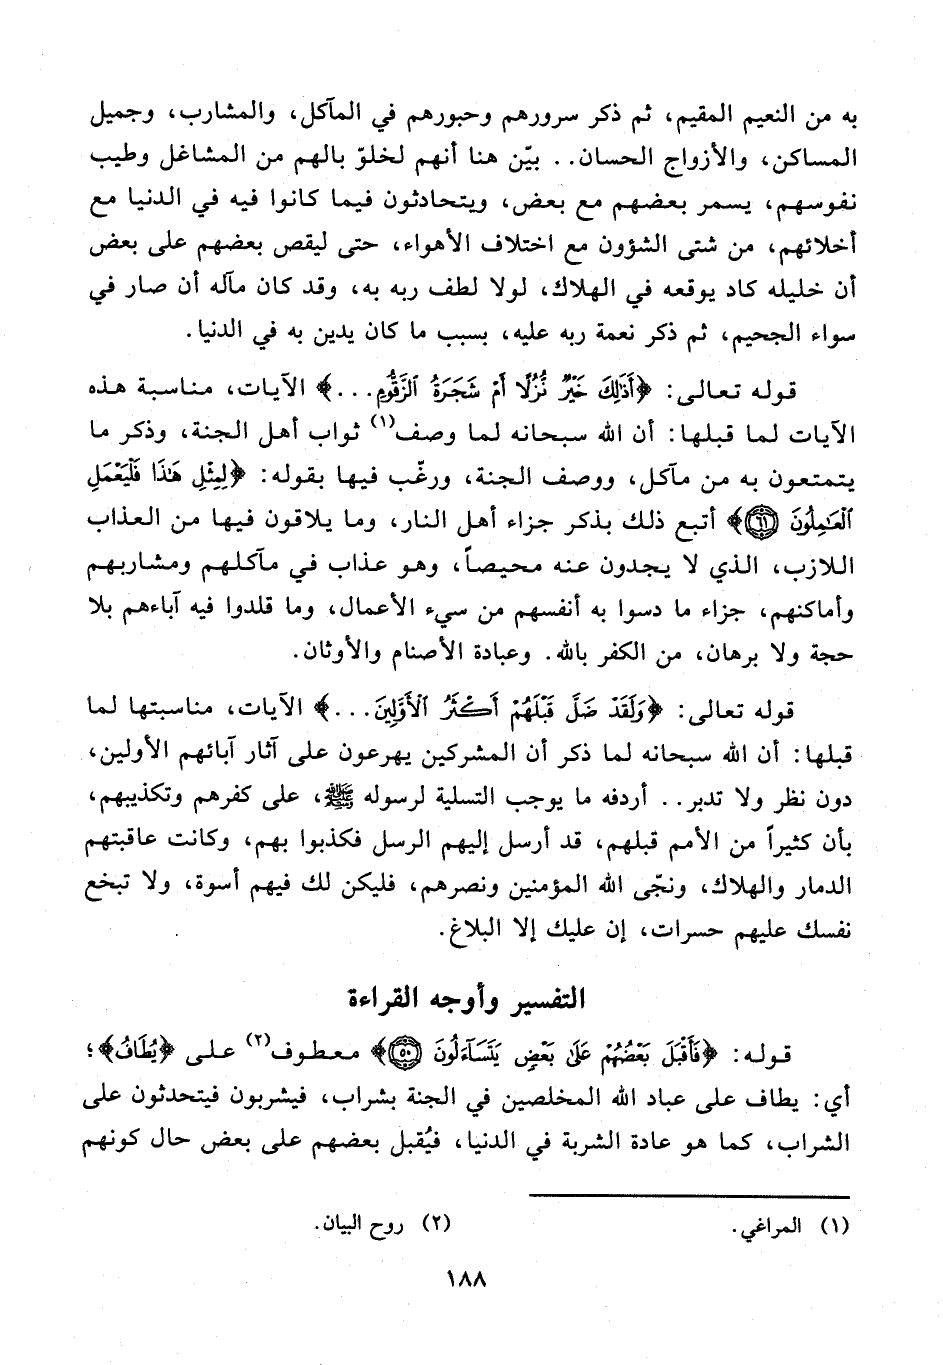 به من النعيم المقيم، ثم ذكر سرورهم وحبورهم في المآكل، والمشارب، وجميل
المساكن، والأزواج الحسان.. بيّن هنا أنهم لخلوّ بالهم من المشاغل وطيب
نفوسهم، يسمر بعضهم مع بعض، ويتحادثون فيما كانوا فيه في الدنيا مع
أخلائهم، من شتى الشؤون مع اختلاف الأهواء، حتى ليقص بعضهم على بعض
أن خليله كاد يوقعه في الهلاك، لولا لطف ربه به، وقد كان مآله أن صار في
سواء الجحيم، ثم ذكر نعمة ربه عليه، بسبب ما كان يدين به في الدنيا.
قوله تعالى: ﴿أَذَٰلِكَ خَيْرٌ نُّزُلًا أَمْ شَجَرَةُ ٱلزَّقُّومِ...﴾ الآيات، مناسبة هذه
الآيات لما قبلها: أن الله سبحانه لما وصف(١) ثواب أهل الجنة، وذكر ما
يتمتعون به من مآكل، ووصف الجنة، ورغّب فيها بقوله: ﴿لِمِثْلِ هَٰذَا فَلْيَعْمَلِ
ٱلْعَٰمِلُونَ ٦١﴾ أتبع ذلك بذكر جزاء أهل النار، وما يلاقون فيها من العذاب
اللازب، الذي لا يجدون عنه محيصاً، وهو عذاب في مآكلهم ومشاربهم
وأماكنهم، جزاء ما دسوا به أنفسهم من سيء الأعمال، وما قلدوا فيه آباءهم بلا
حجة ولا برهان، من الكفر بالله. وعبادة الأصنام والأوثان.
قوله تعالى: ﴿وَلَقَدْ ضَلَّ قَبْلَهُمْ أَكْثَرُ ٱلْأَوَّلِينَ...﴾ الآيات، مناسبتها لما
قبلها: أن الله سبحانه لما ذكر أن المشركين يهرعون على آثار آبائهم الأولين،
دون نظر ولا تدبر.. أردفه ما يوجب التسلية لرسوله ﷺ، على كفرهم وتكذيبهم،
بأن كثيراً من الأمم قبلهم، قد أرسل إليهم الرسل فكذبوا بهم، وكانت عاقبتهم
الدمار والهلاك، ونجّى الله المؤمنين ونصرهم، فليكن لك فيهم أسوة، ولا تبخع
نفسك عليهم حسرات، إن عليك إلا البلاغ.
التفسير وأوجه القراءة
قوله: ﴿فَأَقْبَلَ بَعْضُهُمْ عَلَىٰ بَعْضٍ يَتَسَآءَلُونَ ٥٠﴾ معطوف(٢) على ﴿يُطَافُ﴾؛
أي: يطاف على عباد الله المخلصين في الجنة بشراب، فيشربون فيتحدثون على
الشراب، كما هو عادة الشربة في الدنيا، فيُقبل بعضهم على بعض حال كونهم
(١) المراغي. (٢) روح البيان.
١٨٨